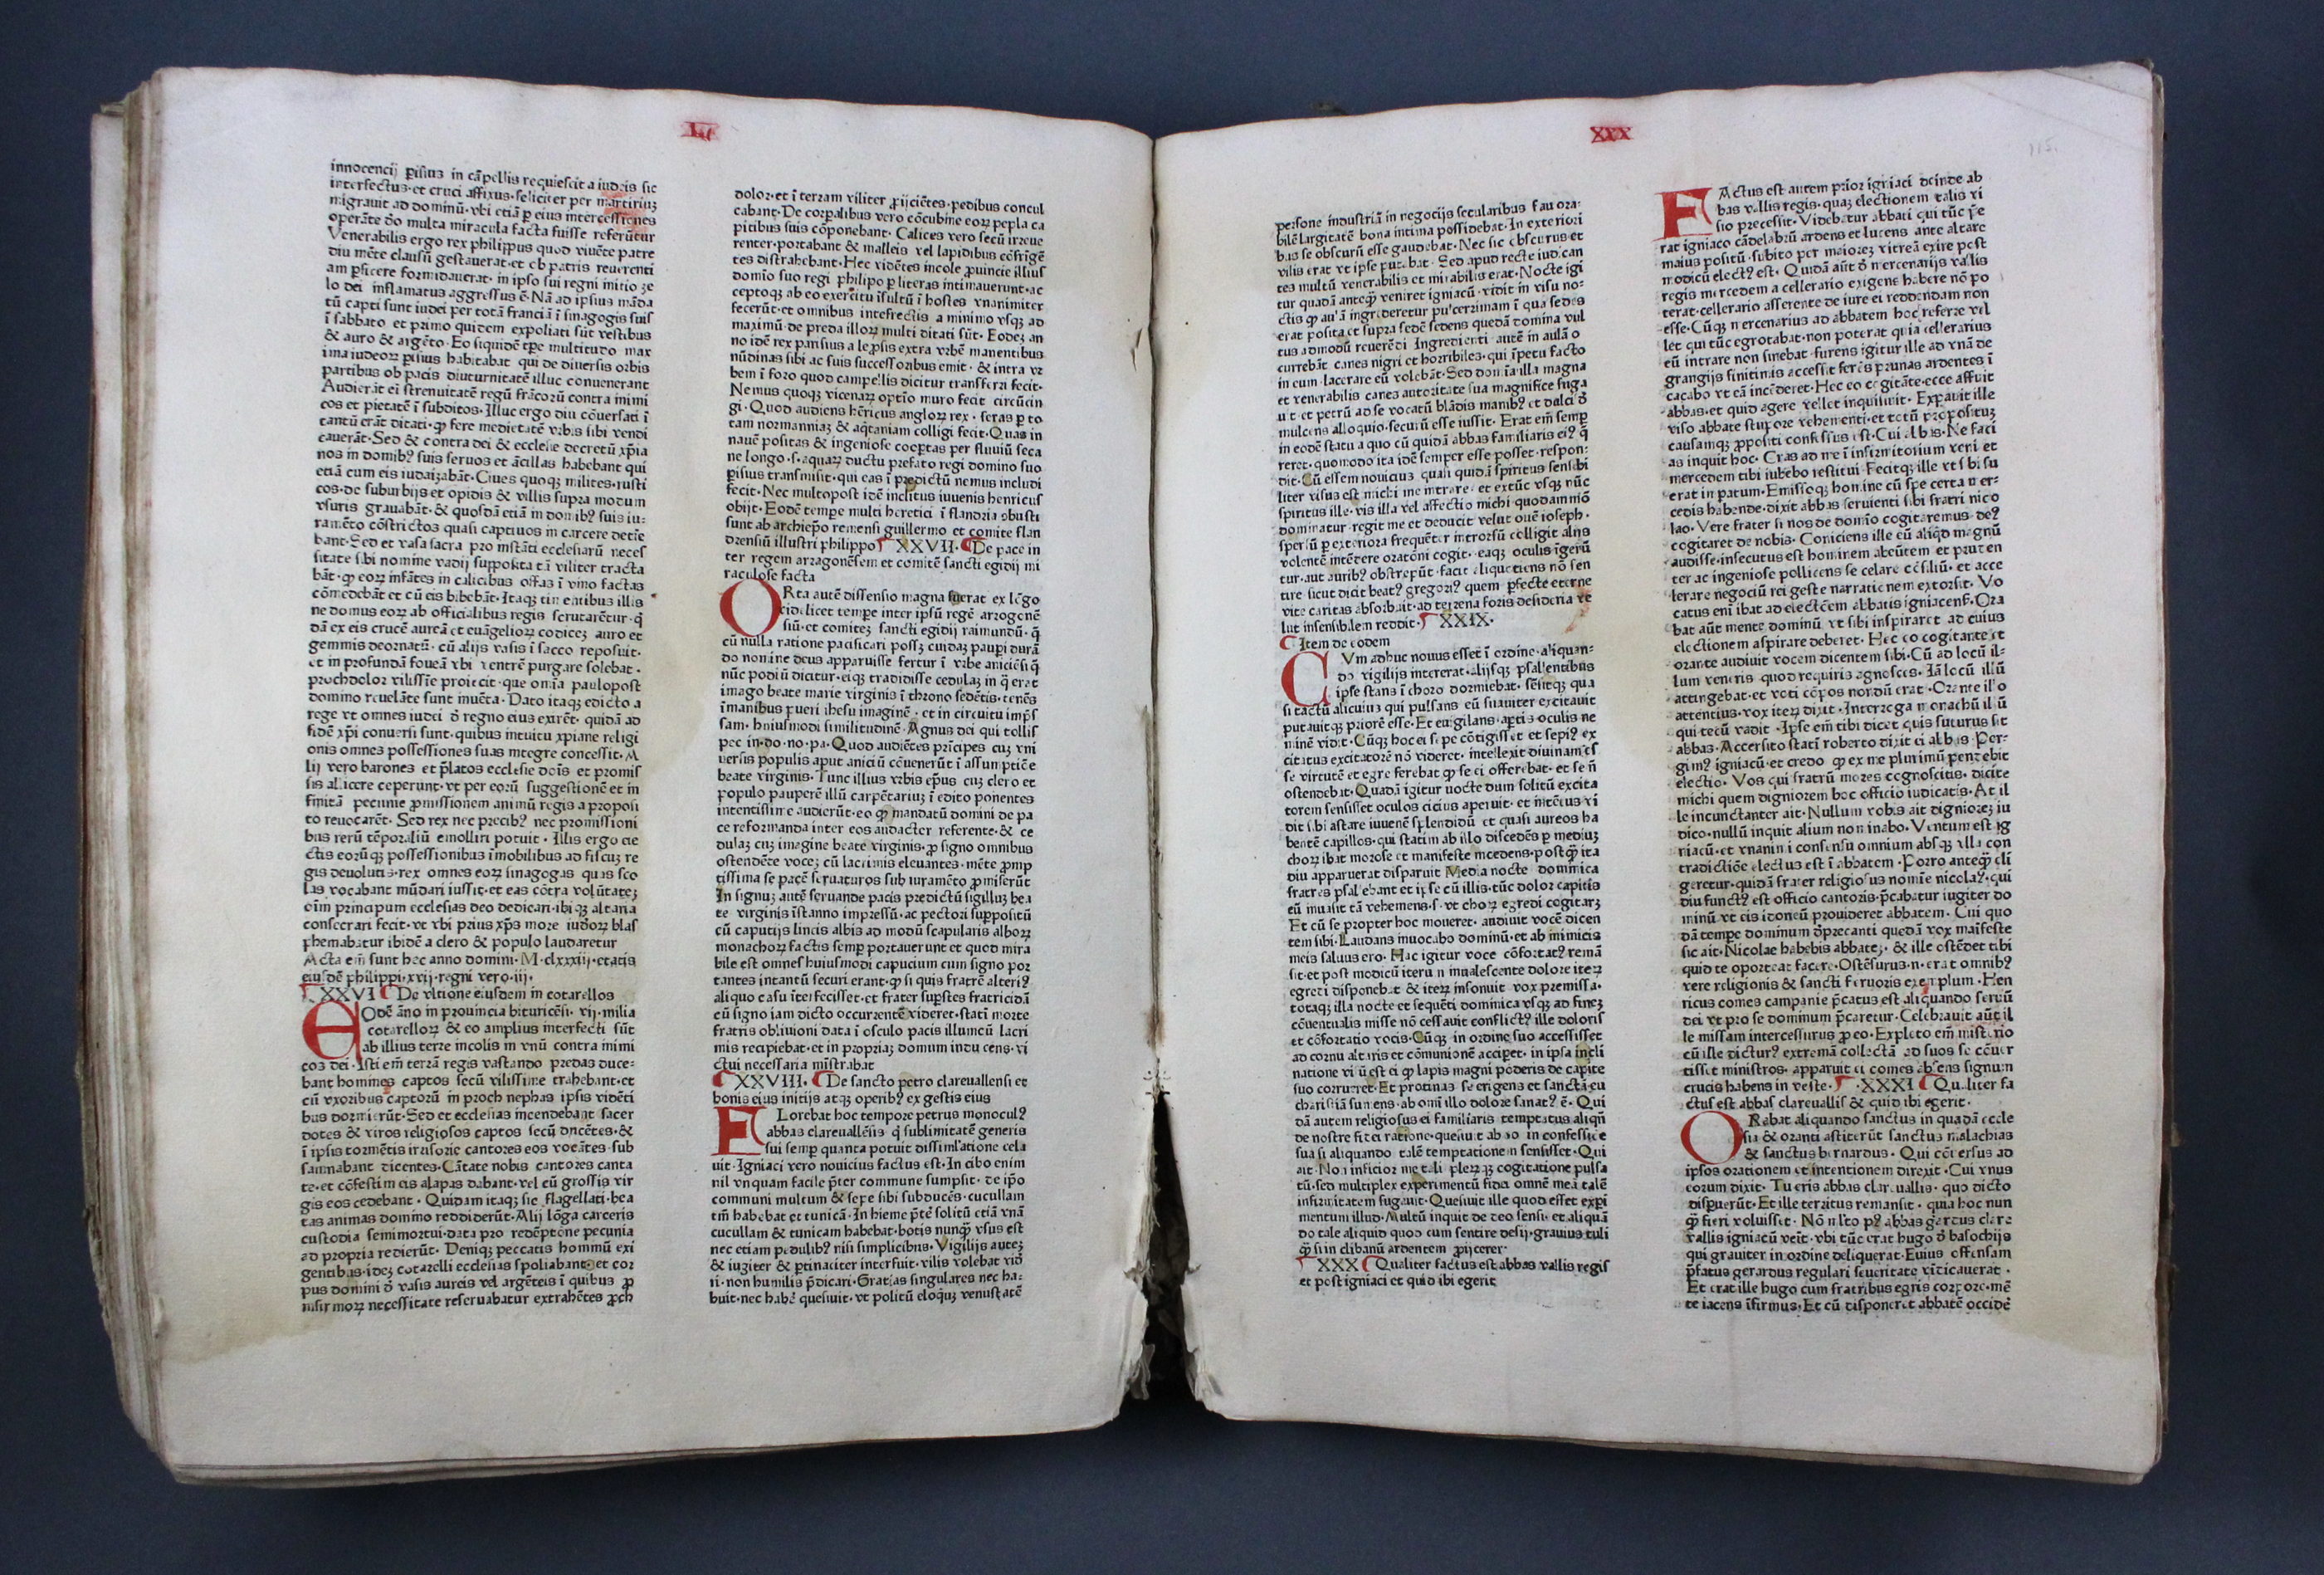 Li
innocencij ꝑisius in cāpellis requiescit a iudeis sic
interfectus·et cruci affixus·feliciter per martirium
migrauit ad dominū·vbi etiā ꝑ eius intercessiones
operāte dō multa miracula facta fuisse referūtur
Venerabilis ergo rex philippus quod viuēte patre
diu mēte clausū gestauerat·et ob patris reuerenti
am ꝑficere formidauerat·in ipso sui regni initio ze
lo dei inflamatus aggressus ē·Nā ad ipsius māda
tū capti sunt iudei per totā franciā ī sinagogis suis
ī sabbato et primo quidem expoliati sūt vestibus
& auro & argēto·Eo siquidē tꝑe multitudo max
ima iudeoꝝ ꝑisius habitabat qui de diuersis orbis
partibus ob pacis diuturnitatē illuc conuenerant
Audierāt ei strenuitatē regū frācorū contra inimi
cos et pietatē ī subditos·Illuc ergo diu cōuersati ī
tantū erāt ditati·qꝫ fere medietatē vrbis sibi vendi
cauerāt·Sed & contra dei & ecclesie decretū xp̄ia
nos in domibꝰ suis seruos et ācillas habebant qui
etiā cum eis iudaizabāt·Ciues quoqꝫ milites·rusti
cos·de suburbijs et opidis & villis supra modum
vsuris grauabāt·& quosdā etiā in domibꝰ suis iu-
ramēto cōstrictos quasi captiuos in carcere detie
bant·Sed et vasa sacra pro īstāti ecclesiarū neces
sitate sibi nomine vadij supposita tā viliter tracta
bāt·qꝫ eoꝝ infātes in calicibus offas ī vino factas
cōmedebāt et cū eis bibebāt·Itaqꝫ timentibus illis
ne domus eoꝝ ab officialibus regis scrutarētur·q
dā ex eis crucē aureā et euāgelioꝝ codicez auro et
gemmis decornatū·cū alijs vasis ī sacco reposuit·
et in profundā foueā vbi ventrē purgare solebat·
prochdolor vilissie proiecit·que omīa paulopost
domino reuelāte sunt inuēta·Dato itaqꝫ edicto a
rege vt omnes iudei d̄ regno eius exirēt·quidā ad
fidē xp̄i conuersi sunt·quibus intuitu xpiane religi
onis omnes possessiones suas integre concessit·A
lij vero barones et p̄latos ecclesie dōis et promis
sis allicere ceperunt·vt per eorū suggestionē et in
finitā pecunie ꝓmissionem animū regis a proposi
to reuocarēt·Sed rex nec precibꝰ nec promissioni
bus rerū tēporaliū emolliri potuit·Illis ergo eie
ctis eorūqꝫ possessionibus īmobilibus ad fiscuꝫ re
gis deuolutis·rex omnes eoꝝ sinagogas quas sco
las vocabant mūdari iussit·et eas cōtra volūtatez
oīm principum ecclesias deo dedicari·ibiqꝫ altaria
consecrari fecit·vt vbi prius xp̄s more iudoꝝ blas
phemabatur ibidē a clero & populo laudaretur
Acta em̄ sunt hec anno domini·M·clxxxiij·etatis
eiusdē philippi·xvij·regni vero·iij·
XXVI De vltione eiusdem in cotarellos
EOdē āno in prouincia bituricēsi·vij·milia
cotarelloꝝ & eo amplius interfecti sūt
ab illius terre incolis in vnū contra inimi
cos dei·Isti em̄ terrā regis vastando predas duce-
bant homines captos secū vilissime trahebant·et
cū vxoribus captorū in proch nephas ipsis vidēti
bus dormierūt·Sed et ecclesias incendebant sacer
dotes & viros religiosos captos secū ducētes·&
ī ipsis tormētis irrisorie cantores eos vocātes·sub
sannabant dicentes·Cātate nobis cantores canta
te·et cōfestim eis alapas dabant·vel cū grossis vir
gis eos cedebant·Quidam itaqꝫ sic flagellati·bea
tas animas domino reddiderūt·Alij lōga carceris
custodia semimortui·data pro redēptone pecunia
ad propria redierūt·Deniqꝫ peccatis hominū exi
gentibus·idez cotarelli ecclesias spoliabant·et cor
pus domini d̄ vasis aureis vel argēteis ī quibus ꝓ
infirmoꝝ necessitate reseruabatur extrahētes ꝓch
dolor·et ī terram viliter ꝓijciētes·pedibus concul
cabant·De corꝑalibus vero cōcubine eoꝝ pepla ca
pitibus suis cōponebant·Calices vero secū irreue
renter·portabant & malleis vel lapidibus cōfrīgē
tes distrahebant·Hec vidētes incole ꝓuincie illius
domīo suo regi philipo ꝑ literas intimauerunt·ac
ceptoqꝫ ab eo exercitu īsultū ī hostes vnanimiter
fecerūt·et omnibus intefrectis a minimo vsqꝫ ad
maximū·de preda illoꝝ multi ditati sūt·Eodez an
no idē rex parisius a leꝓsis extra vrbē manentibus
nūdinas sibi ac suis successoribus emit·& intra vr
bem ī foro quod campellis dicitur transferri fecit·
Nemus quoqꝫ vicenaꝝ optīo muro fecit circūcin
gi·Quod audiens hēricus angloꝝ rex·feras ꝑ to
tam normanniaz & aq̄taniam colligi fecit·Quas in
nauē positas & ingeniose cooꝑtas per fluuiū seca
ne longo·s·aquaꝝ ductu prefato regi domino suo
ꝑisius transmisit·qui eas ī predictū nemus includi
fecit·Nec multopost idē inclitus iuuenis henricus
obijt·Eodē tempe multi heretici ī flandria cōbusti
sunt ab archiep̄o remensi guillermo et comite flan
drensiū illustri philippo XXVII· De pace in
ter regem arragonēsem et comitē sancti egidij mi
raculose facta
ORta autē dissensio magna fuerat ex lōgo
videlicet tempe inter ipsū regē arrogonē
siū·et comitez sancti egidij raimundū·q̄
cū nulla ratione pacificari possꝫ cuidaz pauꝑi durā
do nomine deus apparuisse fertur ī vrbe aniciēsi q̄
nūc podiū dicitur·eiqꝫ tradidisse cedulaz in q̄ erat
imago beate marie virginis ī throno sedētis·tenēs
īmanibus pueri ihesu imaginē·et in circuitu imp̄s
sam·huiusmodi similitudinē·Agnus dei qui tollis
pec·in·do·no·pa·Quod audiētes prīcipes cuꝫ vni
uersis populis aput aniciū cōuenerūt ī assumptiōe
beate virginis·Tunc illius vrbis ep̄us cuꝫ clero et
populo pauperē illū carpētariuꝫ ī edito ponentes
intentissime audierūt·eo qꝫ mandatū domini de pa
ce reformanda inter eos audacter referente·& ce
dulaz cuꝫ imagine beate virginis·ꝓ signo omnibus
ostendēte vocez cū lacrimis eleuantes·mēte ꝓmp
tissima se pacē seruaturos sub iuramēto ꝓmiserūt
In signuꝫ autē seruande pacis predictū sigilluꝫ bea
te virginis īstanno impressū·ac pectori suppositū
cū caputijs lineis albis ad modū scapularis alboꝝ
monachoꝝ factis semꝑ portauerunt et quod mira
bile est omnes huiusmodi capucium cum signo por
tantes intantū securi erant·qꝫ si quis fratrē alteriꝰ
aliquo casu īterfecisset·et frater suꝑstes fratricidā
cū signo iam dicto occurrentē videret·statī morte
fratris obliuioni data ī osculo pacis illumcū lacri
mis recipiebat·et in propriaz domum inducens·vi
ctui necessaria mīstrabat
XXVIII· De sancto petro clareuallensi et
bonis eius initijs atqꝫ operibꝰ ex gestis eius
FLorebat hoc tempore petrus monoculꝰ
abbas clareuallēsis q̄ sublimitatē generis
sui semꝑ quanta potuit dissimlatione cela
uit·Igniaci vero nouicius factus est·In cibo enim
nil vnquam facile p̄ter commune sumpsit·de ip̄o
communi multum & sepe sibi subducēs·cucullam
tm̄ habebat et tunicā·In hieme p̄tē solitū etiā vnā
cucullam & tunicam habebat·botis nunqꝫ vsus est
nec etiam pedulibꝰ nisi simplicibus·Vigilijs autez
& iugiter & ꝑtinaciter interfuit·vilis volebat vid
ri·non humilis p̄dicari·Gratias singulares nec ha-
buit·nec habē quesiuit·vt politū eloquꝫ venustatē
XXX
115.
persone industriā in negocijs secularibus fauora-
bilē largitatē bona intima possidebat·In exteriori
bus se obscurū esse gaudebat·Nec sic obscurus et
vilis erat vt ipse putabat·Sed apud recte iudican
tes multū venerabilis et mirabilis erat·Nocte igi
tur quadā anteqꝫ veniret igniacū·vidit in visu no-
ctis qꝫ aulā ingrederetur pulcerimam ī qua sedes
erat posita et supra sedē sedens quedā domina vul
tus admodū reuerēdi Ingredienti autē in aulā o
currebāt canes nigri et horribiles·qui īpetu facto
in eum lacerare eū volebāt·Sed domīa illa magna
et venerabilis canes autoritate sua magnifice fuga
uit et petrū ad se vocatū blādis manibꝰ et dulci d̄
mulcens alloquio·securū esse iussit·Erat em̄ semꝑ
in eodē statu a quo cū quidā abbas familiaris eiꝰ q̄
reret·quomodo ita idē semper esse posset·respon-
dit·Cū essem nouicius quasi quidā spiritus sensibi
liter visus est michi me intrare·et extūc vsqꝫ nūc
spiritus ille·vis illa vel affectio michi quodammō
dominatur·regit me et deducit velut ouē ioseph·
spersū ꝑ exteriora frequēter introrsū colligit alias
volentē intēdere oratōni cogit·eaqꝫ oculis īgerū
tur·aut auribꝰ obstrepūt·facit aliquotiens nō sen
tire·sicut dicit beatꝰ gregoriꝰ quem ꝑfecte eterne
vite caritas absorbuit·ad terrena foris desideria ve
lut insensibilem reddit· XXIX·
Item de eodem
CVm adhuc nouus esset ī ordine·aliquan-
do vigilijs intererat·alijsqꝫ psallentibus
ipse stans ī choro dormiebat·sēsitqꝫ qua
si tactū alicuius qui pulsans eū suauiter excitauit
putauitqꝫ priorē esse·Et euigilans·aꝑtis oculis ne
minē vidit·Cūqꝫ hoc ei sepe cōtigisset et sepiꝰ ex
citatus excitatorē nō videret·intellexit diuinam es
se virtutē et egre ferebat qꝫ se ei offerebat·et se n̄
ostendebat·Quadā igitur nocte dum solitū excita
torem sensisset oculos cicius aperuit·et intētus vi
dit sibi astare iuuenē splendidū et quasi aureos ha
bentē capillos·qui statim ab illo discedēs ꝑ mediuꝫ
choꝝ ibat morose et manifeste incedens·postqꝫ ita
diu apparuerat disparuit Media nocte dominica
fratres psallebant et ipse cū illis·tūc dolor capitis
eū inuasit tā vehemens·s·vt choꝝ egredi cogitarꝫ
Et cū se propter hoc moueret·audiuit vocē dicen
tem sibi·Laudans inuocabo dominū·et ab inimicis
meis saluus ero·Hac igitur voce cōfortatꝰ remā
sit·et post modicū iterū inualescente dolore iteꝝ
egredi disponebat & iteꝝ insonuit vox premissa·
totaqꝫ illa nocte et sequēti dominica vsqꝫ ad finez
cōuentualis misse nō cessauit conflictꝰ ille doloris
et cōfortatio vocis·Cūqꝫ in ordine suo accessisset
ad cornu altaris et cōmunionē acciꝑet·in ipsa incli
natione visū est ei qꝫ lapis magni ponderis de capite
suo corrueret·Et protinus se erigens et sanctā eu
charistiā sumens·ab omī illo dolore sanatꝰ ē·Qui
dam autem religiosus ei familiaris temptatus aliqn̄
de nostre fidei ratione·quesiuit ab eo in confessiōe
sua si aliquando talē temptationem sensisset·Qui
ait·Non inficior me tali pleꝝqꝫ cogitatione pulsa
tū·sed multiplex experimentū fidei omnē meā talē
infirmitatem fugauit·Quesiuit ille quod esset exꝑi
mentum illud·Multū inquit de deo sensi·et aliquā
do tale aliquid quod cum sentire desij·grauius tuli
qꝫ si in clibanū ardentem ꝓijcerer·
XXX Qualiter factus est abbas vallis regis
et post igniaci et quid ibi egerit
FActus est autem prior igniaci deinde ab
bas vallis regis·quaꝫ electionem talis vi
sio precessit·Videbatur abbati qui tūc p̄e
rat igniaco cādelabrū ardens et lucens ante altare
maius positū·subito per maiorez vitreā exire post
modicū electꝰ est·Quidā aūt d̄ mercenarijs vallis
regis mercedem a cellerario exigens habere nō po
terat·cellerario asserente de iure ei reddendam non
esse·Cūqꝫ mercenarius ad abbatem hoc referre vel
let qui tūc egrotabat·non poterat quia cellerarius
eū intrare non sinebat·furens igitur ille ad vnā de
grangijs finitimis accessit ferēs prunas ardentes ī
cacabo vt eā incēderet·Hec eo cogitāte·ecce affuit
abbas·et quid agere vellet inquisiuit·Expauit ille
viso abbate stupore vehementi·et totū propositum
causamqꝫ ꝓpositi confessus est·Cui abbas·Ne faci
as inquit hoc·Cras ad me ī infirmitorium veni et
mercedem tibi iubebo restitui·Fecitqꝫ ille vt sibi su
erat imperatum·Emissoqꝫ homine cū spe certa mer-
cedis habende·dixit abbas seruienti sibi fratri nico
lao·Vere frater si nos de domīo cogitaremus·deꝰ
cogitaret de nobis·Coniciens ille eū aliqd magnū
audisse·insecutus est hominem abeūtem et pruden
ter ac ingeniose pollicens se celare cōsiliū·et acce
lerare negociū rei geste narrationem extorsit·Vo
catus enī ibat ad electōem abbatis igniacens̄·Ora
bat aūt mente dominū vt sibi inspiraret ad cuius
electionem aspirare deberet·Hec eo cogitante et
orante audiuit vocem dicentem sibi·Cū ad locū il-
lum veneris quod requiris agnosces·Iā locū illū
attingebat·et voti cōpos nondū erat·Orante illo
attentius·vox iteꝝ dixit·Interroga monachū illū
qui tecū vadit·Ipse em̄ tibi dicet quis futurus sit
abbas·Accersito statī roberto dixit ei abbas·Per-
gimꝰ igniacū·et credo qꝫ ex me plurimū pendebit
electio·Vos qui fratrū mores cognoscitis·dicite
michi quem digniorem hoc officio iudicatis·At il
le incunctanter ait·Nullum vobis ait digniorez iu
dico·nullū inquit alium nominabo·Ventum est ig
niacū·et vnanimi consensu omnium absqꝫ vlla con
tradictiōe electus est ī abbatem·Porro anteqꝫ eli
geretur·quidā frater religiosus nomīe nicolaꝰ·qui
diu functꝰ est officio cantoris·p̄cabatur iugiter do
minū vt eis idoneū prouideret abbatem·Cui quo
dā tempe dominum dep̄canti quedā vox maifeste
sic ait·Nicolae habebis abbatez·& ille ostēdet tibi
quid te oporteat facere·Ostēsurus·n·erat omnibꝰ
vere religionis & sancti feruoris exemplum·Hen
ricus comes campanie p̄catus est aliquando seruū
dei vt pro se dominum p̄caretur·Celebrauit aūt il
le missam intercessurus ꝓ eo·Expleto em̄ misterio
cū ille dicturꝰ extremā collectā ad suos se cōuer
tisset ministros·apparuit ei comes absens signum
crucis habens in veste· ·XXXI Qualiter fa
ctus est abbas clareuallis & quid ibi egerit·
ORabat aliquando sanctus in quadā eccle
sia & oranti astiterūt sanctus malachias
& sanctus bernardus·Qui cōuersus ad
ipsos orationem et intentionem direxit·Cui vnus
eorum dixit·Tu eris abbas clareuallis·quo dicto
disꝑuerūt·Et ille territus remansit·quia hoc nun
qꝫ fieri voluisset·Nō multo pꝰ abbas gerardus clare
vallis igniacū veīt·vbi tūc erat hugo d̄ basochijs
qui grauiter in ordine deliquerat·Euius offensam
p̄fatus gerardus regulari seueritate vīdicauerat·
Et erat ille hugo cum fratribus egris corpore·mē
te iacens īfirmus·Et cū disponeret abbatē occidē